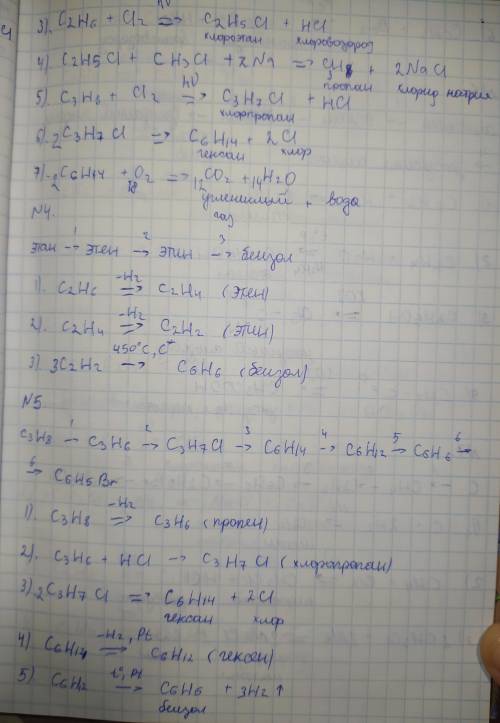 3). C2H6 + Cl2 =hν=> C2H5Cl + HCl
хлорэтан хлороводород
4) C2H5Cl + CH3Cl + 2Na => + 2NaCl
пропан хлорид натрия
5) C3H8 + Cl2 =hν=> C3H7Cl + HCl
хлорпропан
6). 2C3H7Cl => C6H14 + 2Cl
гексан хлор
7). 2C6H14 + 19O2 => 12CO2 + 14H2O
углекислый газ + вода
N4.
этан -1-> этен -2-> этин -3-> бензол
1). C2H6 =-H2=> C2H4 (этен)
2). C2H4 =-H2=> C2H2 (этин)
3) 3C2H2 -450°C, C-> C6H6 (бензол)
N5.
C3H8 -1-> C3H6 -2-> C3H7Cl -3-> C6H14 -4-> C6H12 -5-> C6H6 -6->
-6-> C6H5Br
1). C3H8 =-H2=> C3H6 (пропен)
2). C3H6 + HCl -> C3H7Cl (хлорпропан)
3) 2C3H7Cl => C6H14 + 2Cl
гексан хлор
4) C6H14 =-H2, Pt=> C6H12 (гексен)
5) C6H12 =t°, Pt=> C6H6 + 3H2↑
бензол